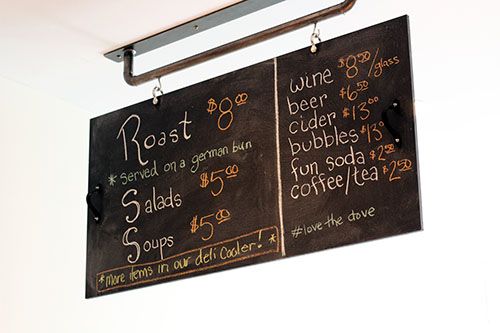 Roast $8.00
*served on a german bun
Salads $5.00
Soups $5.00
*more items in our deli cooler!*
wine $8.50/glass
beer $6.50
cider $13.00
bubbles $13.00
fun soda $2.50
coffee/tea $2.50
#love the dove